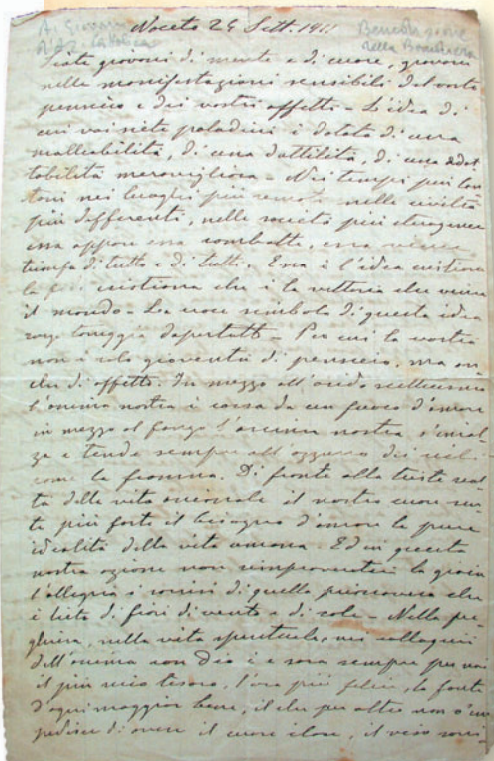 Ai Giovani
d'Az. Cattolica
Benedizione
della Bandiera
Noceto 24 Sett. 1911
Siate giovani di mente e di cuore, giovani
nelle manifestazioni sensibili del vostro
pensiero e dei vostri affetti - L'idea di
cui voi siete paladini è dotata di una
malleabilità, di una duttilità, di una adat
tabilità meravigliosa - Nei tempi più lon
tani nei luoghi più remoti nelle civiltà
più differenti, nelle società più eterogenee
essa appare essa combatte, essa vince
trionfa di tutto e di tutti. Essa è l'idea cristiana
la fede cristiana che è la vittoria che vince
il mondo - La croce simbolo di questa idea
sorge torreggia dapertutto - Per cui la vostra
non è solo gioventù di pensiero, ma an
che di affetto. In mezzo all'arido scetticismo
l'anima nostra è arsa da un fuoco d'amore
in mezzo al fango l'anima nostra s'innal
za e tende sempre all'azzurro dei cieli
come la fiamma. Di fronte alla triste real
tà della vita il nostro cuore sen
te più forte il bisogno d'amore la pura
idealità della vita umana. Ed in questa
vostra azione non rimproverateci la gioia
l'allegria i sorrisi di quella primavera che
è lieta di fiori di vento e di sole - Nella pre
ghiera, nella vita spirituale, nei colloqui
dell'anima con Dio è e sarà sempre per noi
il più ricco tesoro, l'ora più felice, la fonte
d'ogni maggior bene, il che per altro non c'im
pedisce di avere il cuore ilare, il vero sorri